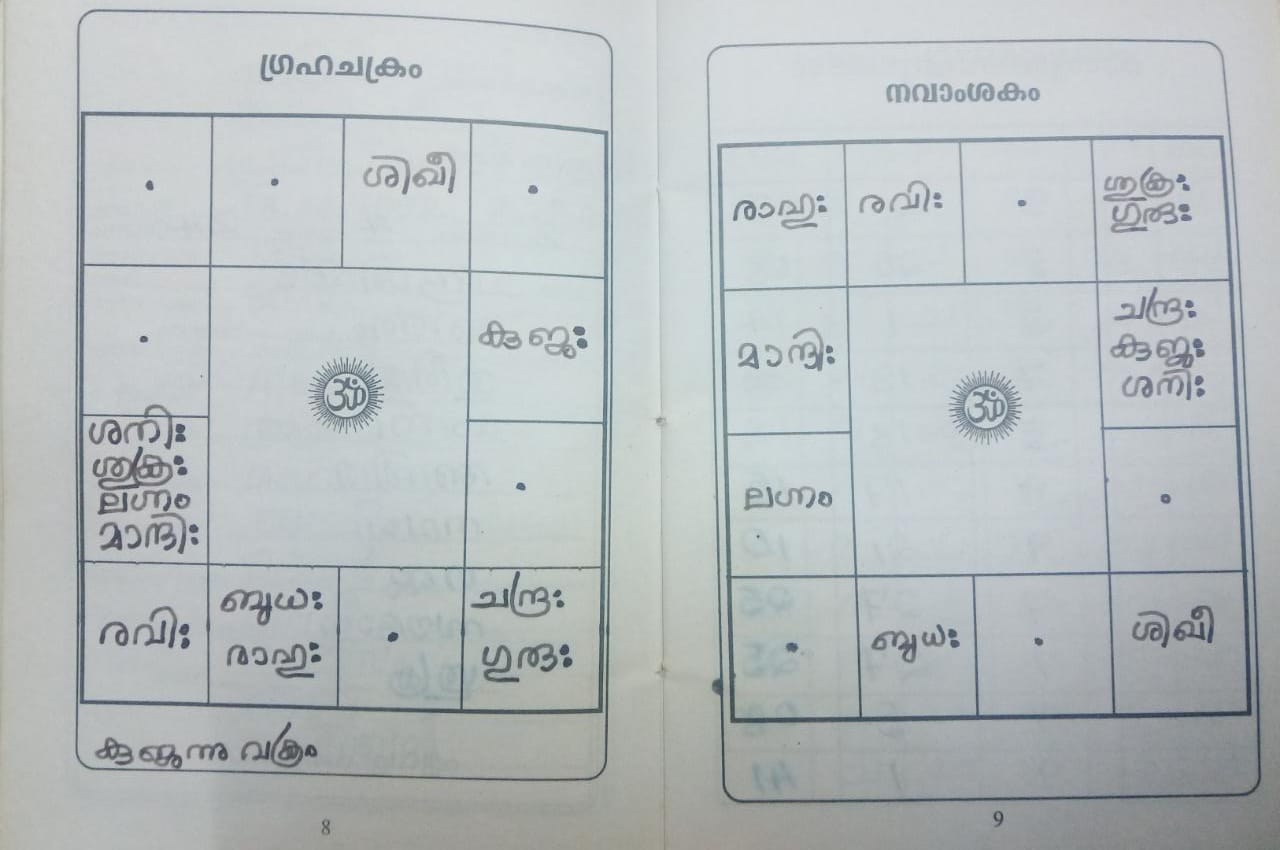 ഗ്രഹചക്രം
ശിഖീ
കുജഃ
ശനിഃ
ശുക്രഃ
ലഗ്നം
മാന്ദിഃ
രവിഃ
ബുധഃ
രാഹുഃ
ചന്ദ്രഃ
ഗുരുഃ
കുജന്നു വക്രം
8
നവാംശകം
രാഹുഃ
രവിഃ
ശുക്രഃ
ഗുരുഃ
മാന്ദിഃ
ചന്ദ്രഃ
കുജഃ
ശനിഃ
ലഗ്നം
ബുധഃ
ശിഖീ
9